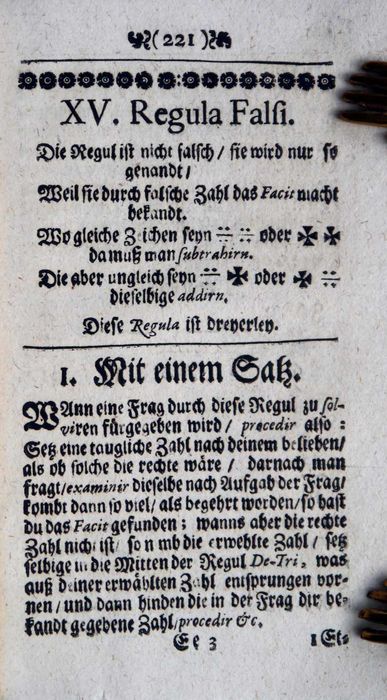 (221)
XV. Regula Falsi.
Die Regul ist nicht falsch / sie wird nur so
genandt /
Weil sie durch falsche Zahl das Facit macht
bekandt.
Wo gleiche Zeichen seyn ÷ ÷ oder ✠ ✠
da muß man subtrahirn.
Die aber ungleich seyn ÷ ✠ oder ✠ ÷
dieselbige addirn.
Diese Regula ist dreyerley.
1. Mit einem Satz.
WAnn eine Frag durch diese Regul zu sol-
viren fürgegeben wird / procedir also:
Setz eine taugliche Zahl nach deinem belieben /
als ob solche die rechte wäre / darnach man
fragt / examinir dieselbe nach Aufgab der Frag /
kombt dann so viel / als begehrt worden / so hast
du das Facit gefunden; wanns aber die rechte
Zahl nicht ist / so nimb die erwehlte Zahl / setz
selbige in die Mitten der Regul De-Tri, was
auß deiner erwählten Zahl entsprungen vor-
nen / und dann hinden die in der Frag dir be-
kandt gegebene Zahl / procedir &c.
Ee 3 1 Et-